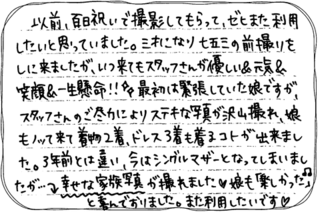 以前、百日祝いで撮影してもらって、ゼヒまた利用
したいと思っていました。三才になり七五三の前撮りを
しに来ましたが、いつ来てもスタッフさんが優しい&元気&
笑顔&一生懸命!!最初は緊張していた娘ですが、
スタッフさんのご尽力によりステキな写真が沢山撮れ、娘
もノッて来て着物2着、ドレス3着も着るコトが出来まし
た。3年前とは違い、今はシングルマザーとなってしまいまし
たが…幸せな家族写真が撮れました♡娘も「楽しかった♪」
と喜んでおりました。また利用したいです♡